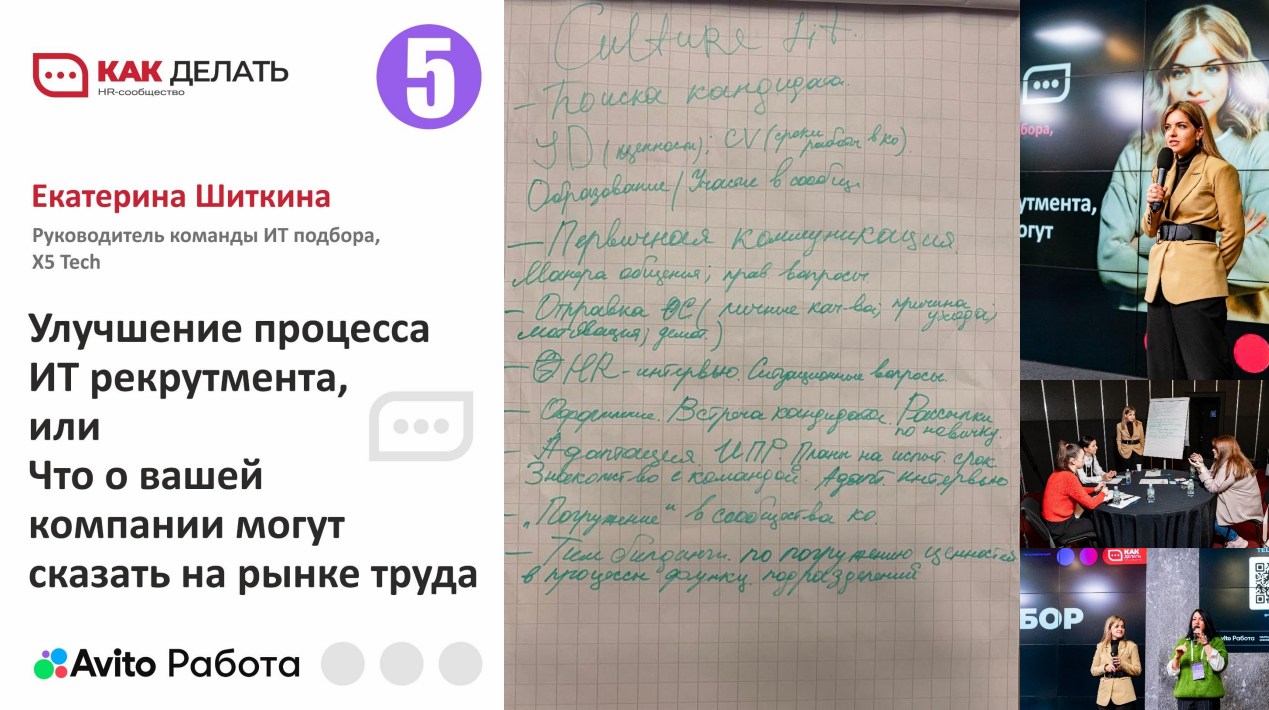 КАК ДЕЛАТЬ
HR-сообщество
5
Екатерина Шиткина
Руководитель команды ИТ подбора,
X5 Tech
Улучшение процесса
ИТ рекрутмента,
или
Что о вашей
компании могут
сказать на рынке труда
Avito Работа
Culture fit.
- Поиска кандидата.
JD (ценности); CV (сроки
работы в ко).
Образование / Участие в сообщ.
- Первичная коммуникация.
Манера общения; прав вопросы
- Отправка ОС ( личные кач-ва; причина
ухода;
мотивация; демот.)
- HR - интервью. Ситуационные вопросы.
- Оформление. Встреча кандидата. Рассылки
по новичку.
- Адаптация ИПР Планы на испыт. срок
Знакомство с командой. Адапт. интервью
- „Погружение“ в сообщества ко.
- Тим билдинги. по погружению ценностей
в процессы функц. подразделений
бора,
утмента,
огут
КАК
ДЕЛАТЬ
БОР
Avito Работа